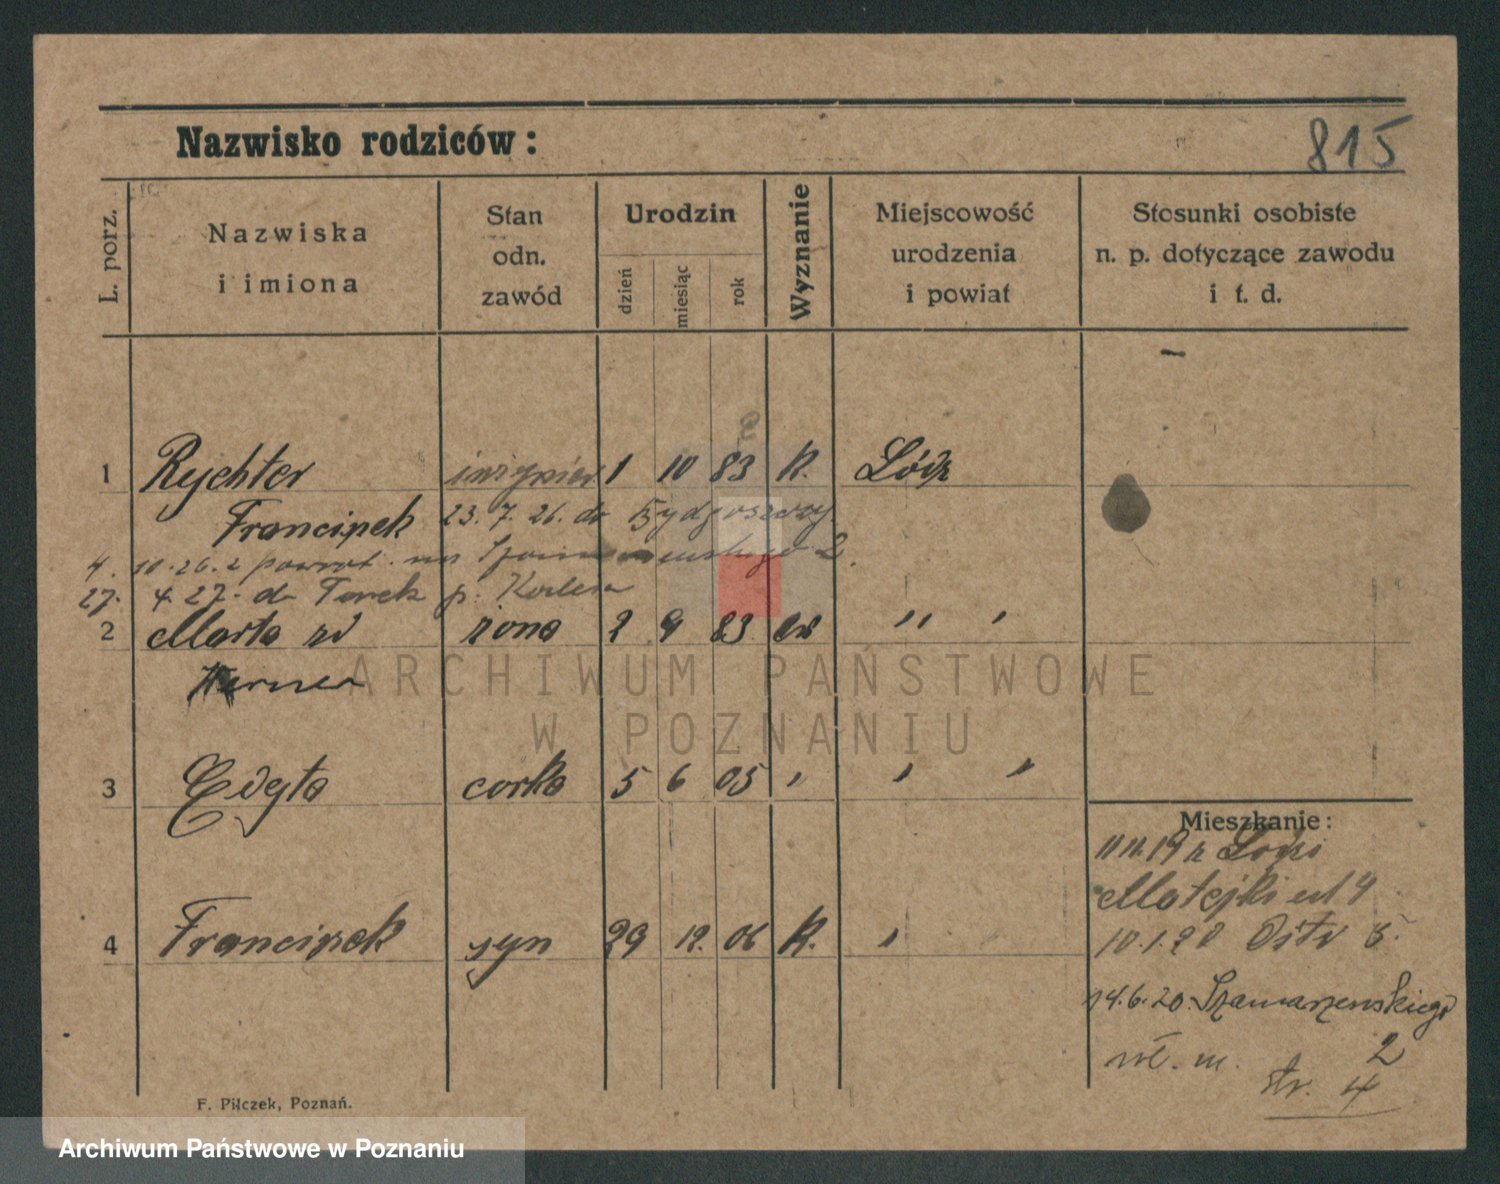 Nazwisko rodziców:
815
L. porz.
Nazwiska
i imiona
Stan
odn.
zawód
Urodzin
dzień
miesiąc
rok
Wyznanie
Miejscowość
urodzenia
i powiat
Stosunki osobiste
n. p. dotyczące zawodu
i t. d.
1 Rychter inżynier 1 10 83 K. Łódź
Franciszek 23. 7. 26. do Bydgoszczy
4. 10. 26. z powrot. na 2.
27. 4. 27. do Turek p.
2 Marta zd żona 2 9 83 ew " "
Werner
3 Edyta corka 5 6 05 " " "
4 Franciszek syn 29 12. 06 K. "
Mieszkanie:
11 11. 19 z Łodzi
Matejki 4
10. 1. 20
14. 6. 20. Szamarzewskiego
2
wł. m.
str. 4
F. Pilczek, Poznań.
ARCHIWUM PAŃSTWOWE
W POZNANIU
Archiwum Państwowe w Poznaniu